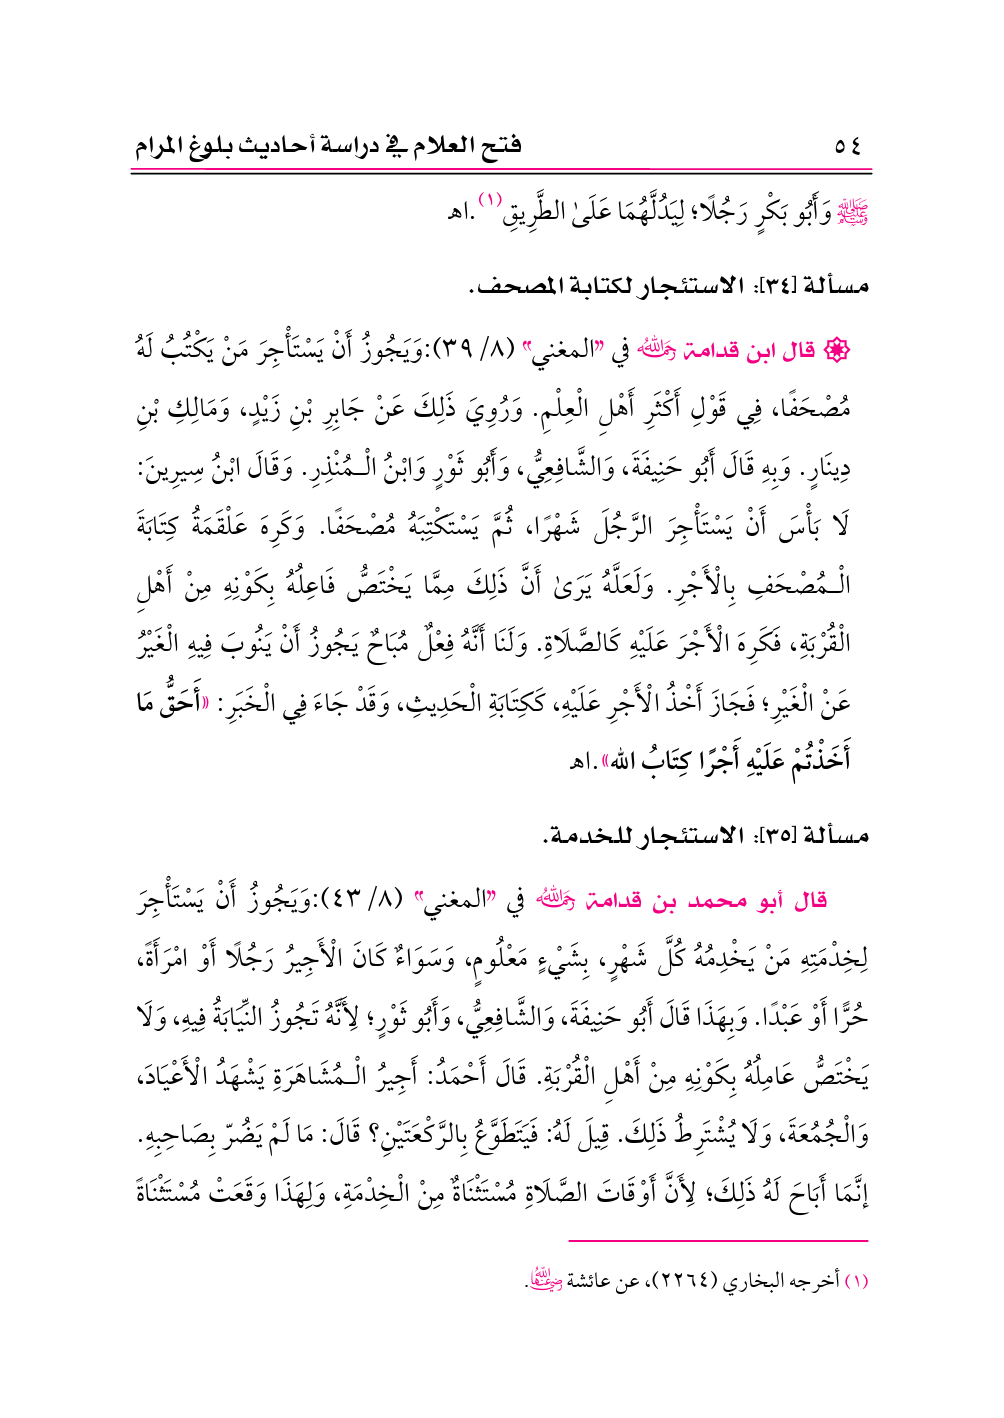 ٥٤ فتح العلام في دراسة أحاديث بلوغ المرام
ﷺ وَأَبُو بَكْرٍ رَجُلًا؛ لِيَدُلَّهُمَا عَلَىٰ الطَّرِيقِ(١).اهـ
مسألة [٣٤]: الاستئجار لكتابة المصحف.
۞ قال ابن قدامة رَحِمَهُ اللهُ في "المغني" (٨/ ٣٩):وَيَجُوزُ أَنْ يَسْتَأْجِرَ مَنْ يَكْتُبُ لَهُ
مُصْحَفًا، فِي قَوْلِ أَكْثَرِ أَهْلِ الْعِلْمِ. وَرُوِيَ ذَلِكَ عَنْ جَابِرِ بْنِ زَيْدٍ، وَمَالِكِ بْنِ
دِينَارٍ. وَبِهِ قَالَ أَبُو حَنِيفَةَ، وَالشَّافِعِيُّ، وَأَبُو ثَوْرٍ وَابْنُ الْـمُنْذِرِ. وَقَالَ ابْنُ سِيرِينَ:
لَا بَأْسَ أَنْ يَسْتَأْجِرَ الرَّجُلَ شَهْرًا، ثُمَّ يَسْتَكْتِبَهُ مُصْحَفًا. وَكَرِهَ عَلْقَمَةُ كِتَابَةَ
الْـمُصْحَفِ بِالْأَجْرِ. وَلَعَلَّهُ يَرَىٰ أَنَّ ذَلِكَ مِمَّا يَخْتَصُّ فَاعِلُهُ بِكَوْنِهِ مِنْ أَهْلِ
الْقُرْبَةِ، فَكَرِهَ الْأَجْرَ عَلَيْهِ كَالصَّلَاةِ. وَلَنَا أَنَّهُ فِعْلٌ مُبَاحٌ يَجُوزُ أَنْ يَنُوبَ فِيهِ الْغَيْرُ
عَنْ الْغَيْرِ؛ فَجَازَ أَخْذُ الْأَجْرِ عَلَيْهِ، كَكِتَابَةِ الْحَدِيثِ، وَقَدْ جَاءَ فِي الْخَبَرِ: «أَحَقُّ مَا
أَخَذْتُمْ عَلَيْهِ أَجْرًا كِتَابُ الله».اهـ
مسألة [٣٥]: الاستئجار للخدمة.
قال أبو محمد بن قدامة رَحِمَهُ اللهُ في "المغني" (٨/ ٤٣):وَيَجُوزُ أَنْ يَسْتَأْجِرَ
لِخِدْمَتِهِ مَنْ يَخْدِمُهُ كُلَّ شَهْرٍ، بِشَيْءٍ مَعْلُومٍ، وَسَوَاءٌ كَانَ الْأَجِيرُ رَجُلًا أَوْ امْرَأَةً،
حُرًّا أَوْ عَبْدًا. وَبِهَذَا قَالَ أَبُو حَنِيفَةَ، وَالشَّافِعِيُّ، وَأَبُو ثَوْرٍ؛ لِأَنَّهُ تَجُوزُ النِّيَابَةُ فِيهِ، وَلَا
يَخْتَصُّ عَامِلُهُ بِكَوْنِهِ مِنْ أَهْلِ الْقُرْبَةِ. قَالَ أَحْمَدُ: أَجِيرُ الْـمُشَاهَرَةِ يَشْهَدُ الْأَعْيَادَ،
وَالْجُمُعَةَ، وَلَا يُشْتَرِطُ ذَلِكَ. قِيلَ لَهُ: فَيَتَطَوَّعُ بِالرَّكْعَتَيْنِ؟ قَالَ: مَا لَمْ يَضُرّ بِصَاحِبِهِ.
إنَّمَا أَبَاحَ لَهُ ذَلِكَ؛ لِأَنَّ أَوْقَاتَ الصَّلَاةِ مُسْتَثْنَاةٌ مِنْ الْخِدْمَةِ، وَلِهَذَا وَقَعَتْ مُسْتَثْنَاةً
(١) أخرجه البخاري (٢٢٦٤)، عن عائشة رَضِيَ اللهُ عَنْهَا.